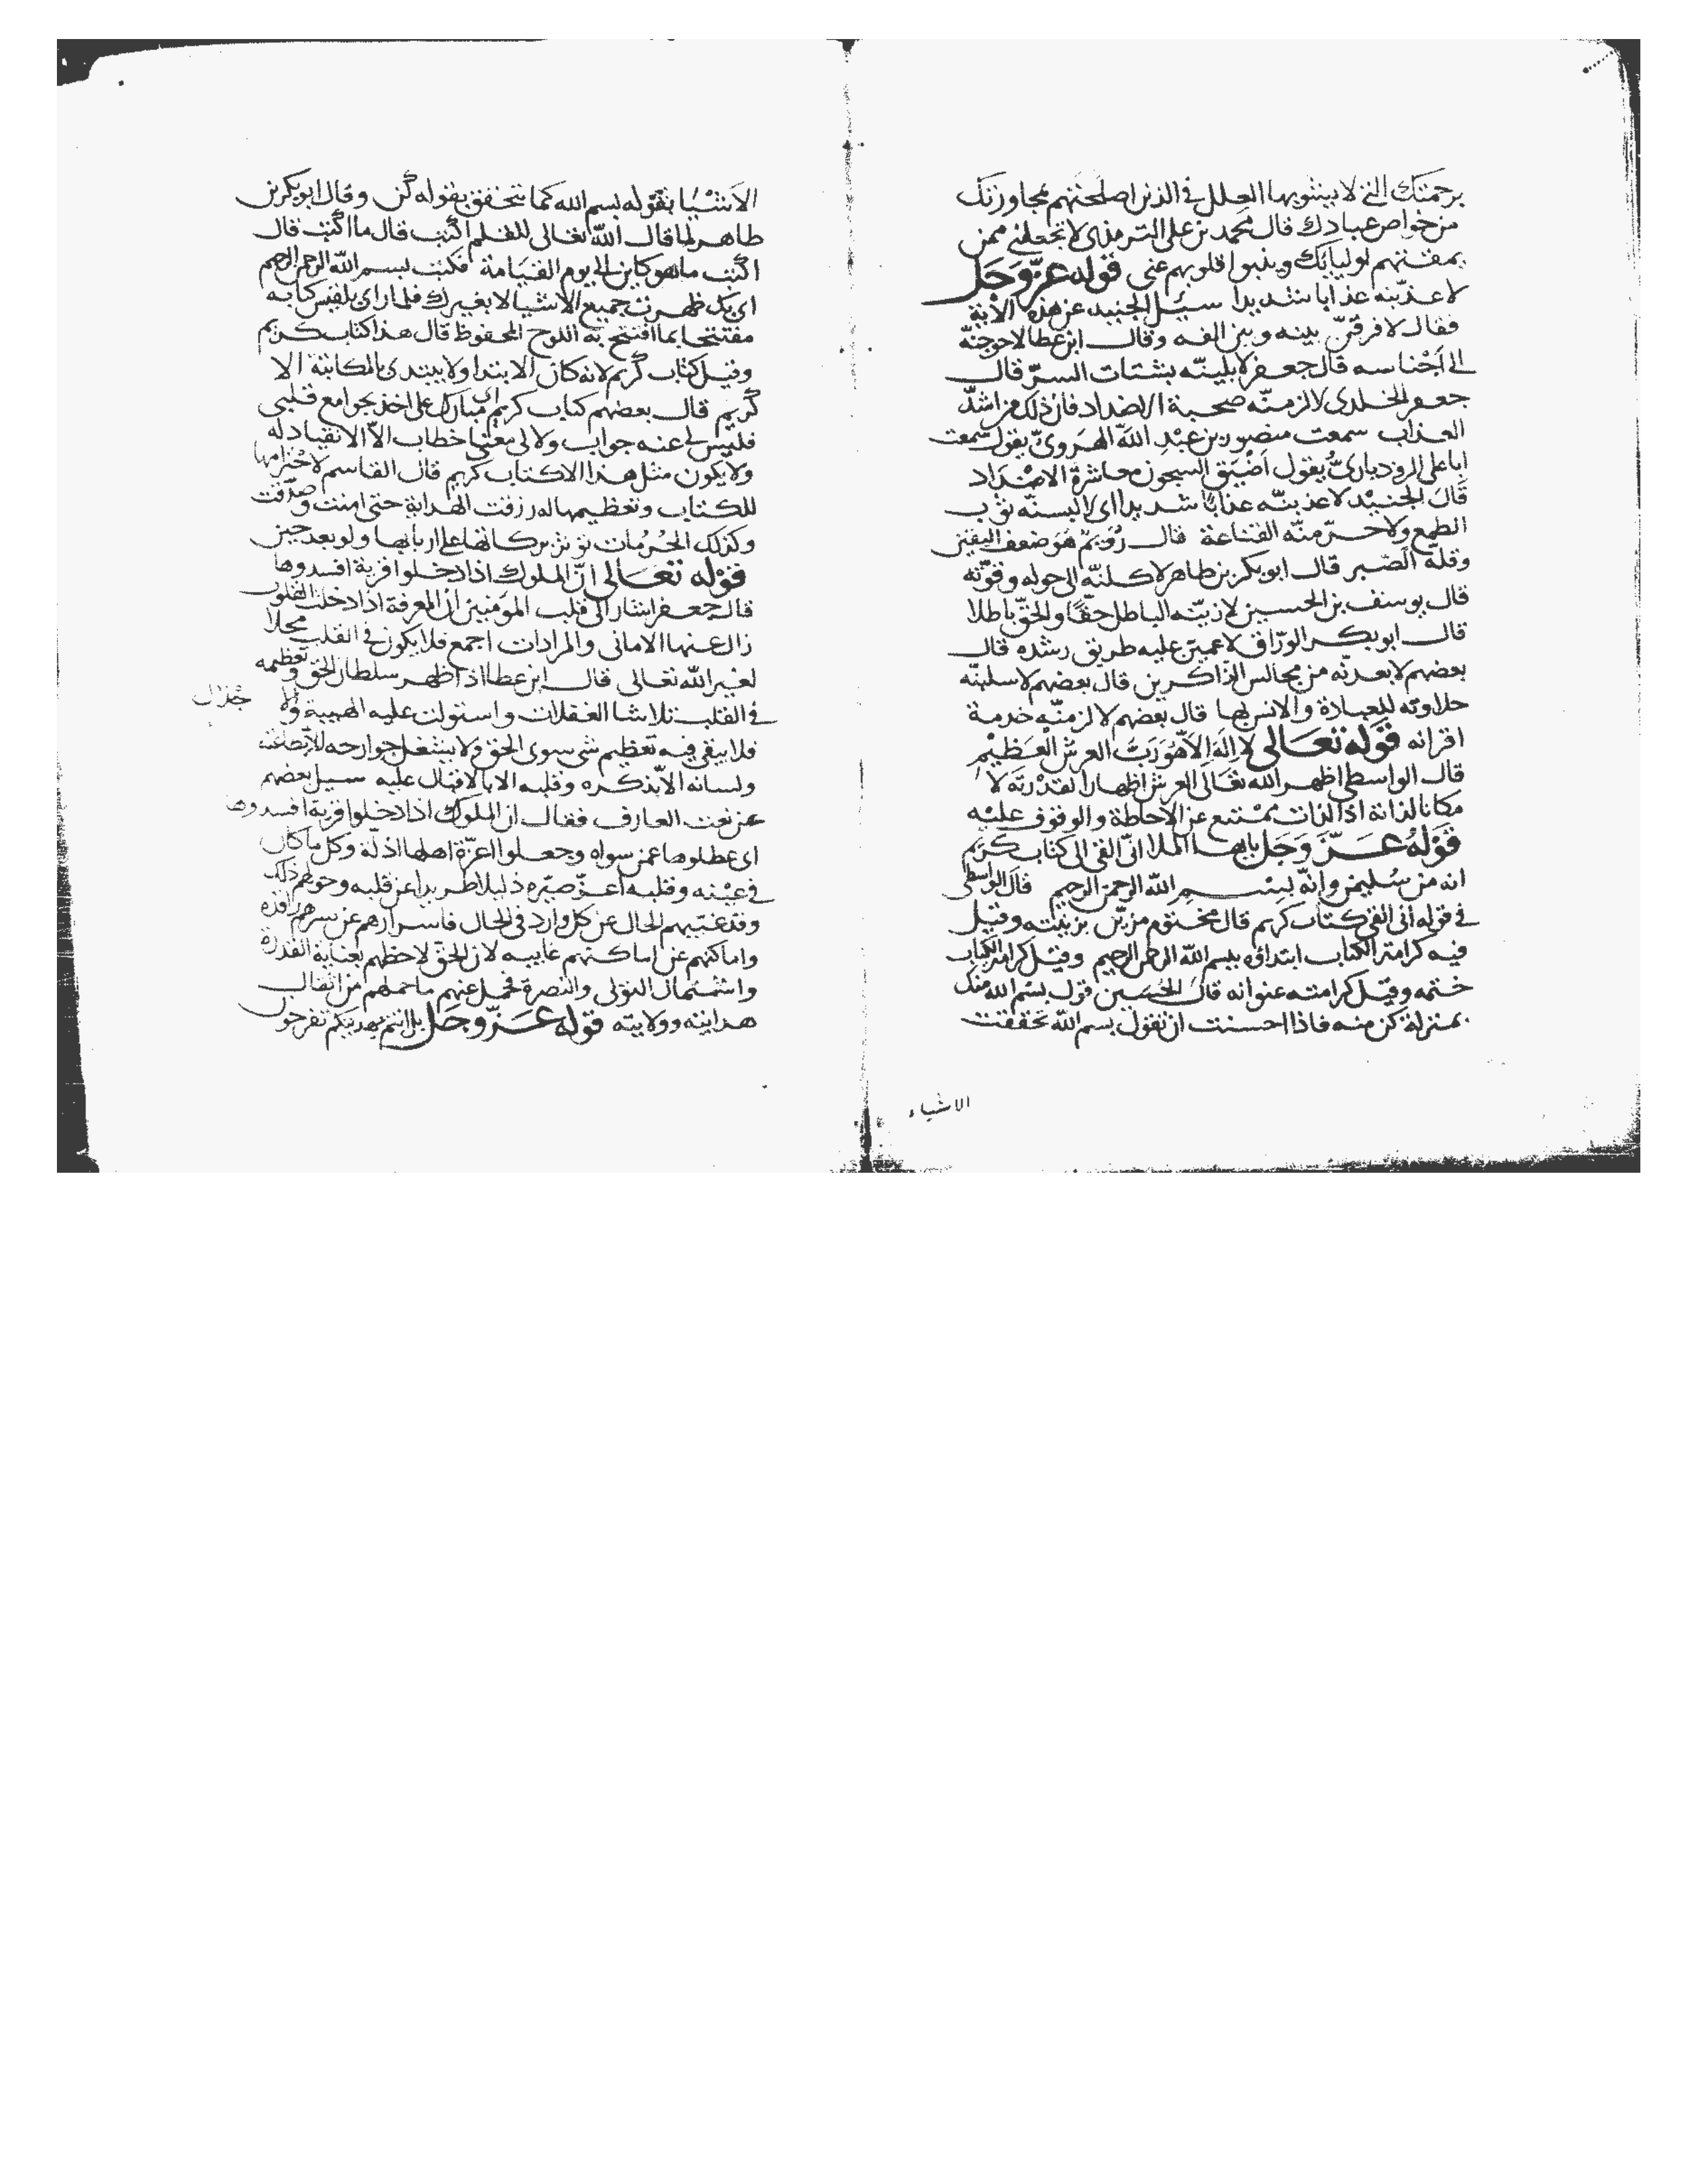 برحمتك التي لا يشوبها العلل في الذين اصلحتهم مجاورتك
من خواص عبادك قال محمد بن علي الترمذي لا تجعلني ممن
يمقتهم اوليايك وينبوا قلوبهم عني قوله عزّ وَجَل
لاعذبنه عذابا شديدا سُيل الجنيد عن هذه الآية
فقال لافرقنّ بينه وبين الفه وقال ابن عطا لاحوجنّه
الى اَجْناسه قال جعفر لابلينّه بشتات السرّ قال
جعفر الخلدي لالزمنّه صحبة الاضداد فان ذلك من اشدّ
العذاب سمعت منصور بن عبد الله الهروىّ يقول سمعت
ابا على الروذبارىّ يقول اَضْيَق السجون معاشرة الاضْدَاد
قَالَ الجنيد لاعذبنّه عذابًا شديدا اى لالبسنّه ثوب
الطمع ولاحرّمنّه القناعة قال رُوَيم هو ضعف اليقين
وقلّة الصّبر قال ابو بكر بن طاهر لاكلنّه الى حوله وقوّته
قال يوسف بن الحسين لازينّنه الباطل حقًّا والحق باطلا
قال ابو بكر الورّاق لاعمين عليه طريق رشده قال
بعضهم لابعدنّه من مجالس الذاكرين قال بعضهم لاسلبنّه
حلاوته للعبادة والانس بها قال بعضهم لالزمنّه خدمة
اقرانه قَوله تعَالى لا الهَ الاّ هُوَ رَبّ العرش العَظيم
قال الواسطي اظهر الله تعَالى العرش اظهارا لقدْرته لا
مكانا لذاته اذ الذات ممْتنع عن الاحاطة والوقوف عليْه
قَوْلهُ عَزّ وَجَل يا ايها الملا انّى القي الى كتاب كريم
انه من سُليمن وانّه بِسْمِ اللّه الرحمن الرحيم قال الواسطى
في قوله انى القي كتاب كريم قال مختوم وقيل
فيه كرامة الكتاب ابتداؤه ببسم اللّه الرحمن الرحيم وقيْل كرامة الكتاب
ختمه وقيل كرامته عنوانه قال الحُسَين قول بسْم الله منك
بمنزلة كن منه فاذا احسنت ان تقول بسم اللّه تحققت
الاشياء
الاشْيا بقوله بسم الله كما تتحقق بقوله كُن وقال ابو بكر بن
طاهر لما قال اللّه تعالى للقلم اكتب قال ما اكتب قال
اكتب ما هو كاين الى يوم القيَامة فكتب بسم اللّه الرحمن الرحيم
اى بك ظهرت جميع الاشيا لا بغيرك فلما راى بلقيس كتابه
مفتتحا بما افتتح به اللوح المحفوظ قال هذا كتاب كريم
وقيل كتاب كريم لانه كان الابتدا ولا يبتدى بالمكاتبة الا
كريم قال بعضهم كتاب كريم اى مبارك على اخذ بجوامع قلبى
فليس لي عنه جواب ولا لى خطاب الّا الانقياد له
ولا يكون مثل هذا الا كتاب كريم قال القاسم لاحْترامها
للكتاب وتعظيمها له رزقت الهداية حتى امنت وصدّقت
وكذلك الحُرُمَات تؤثر بركاتها على اربابها ولو بعد حين
قوْله تعَالى انّ الملوك اذا دخلوا قرية افسدوها
قال جعفر اشار الى قلب المؤمنين ان المعرفة اذا دخلت القلوب
زال عنها الامانى والمرادات اجمع فلا يكون في القلب محلا
لغير اللّه تعالى قال ابن عطا اذا ظهر سلطان الحق وتعظيمه
في القلب تلاشا الغفلات واستولت عليه الهيبة ولا
جلال
فلا يبقى فيه تعظيم شى سوى الحق ولا يشتغل جوارحه الا بطاعته
ولسانه الّا بذكره وقلبه الا بالاقبال عليه سيل بعضهم
عن نعت العارف فقال ان الملوك اذا دخلوا قرية افسدوها
اى عطلوها عمن سواه وجعلوا اعزّة اهلها اذلّة وكل ما كان
في عيْنه وقلبه اعزّ صيّره ذليلا طريدا عن قلبه
وقد غيّبهم الحال عن كل وارد في الحال فاسرارهم عن سرهم
واماكنهم عن اماكنهم غايبه لان الحق لاحظهم بعناية القدرة
واشتمال التولى والنصرة فحمل عنهم ما حملهم من اثقال
هدايته وولايته قوله عَزّ وجَل بل انتم بهديتكم تفرحون